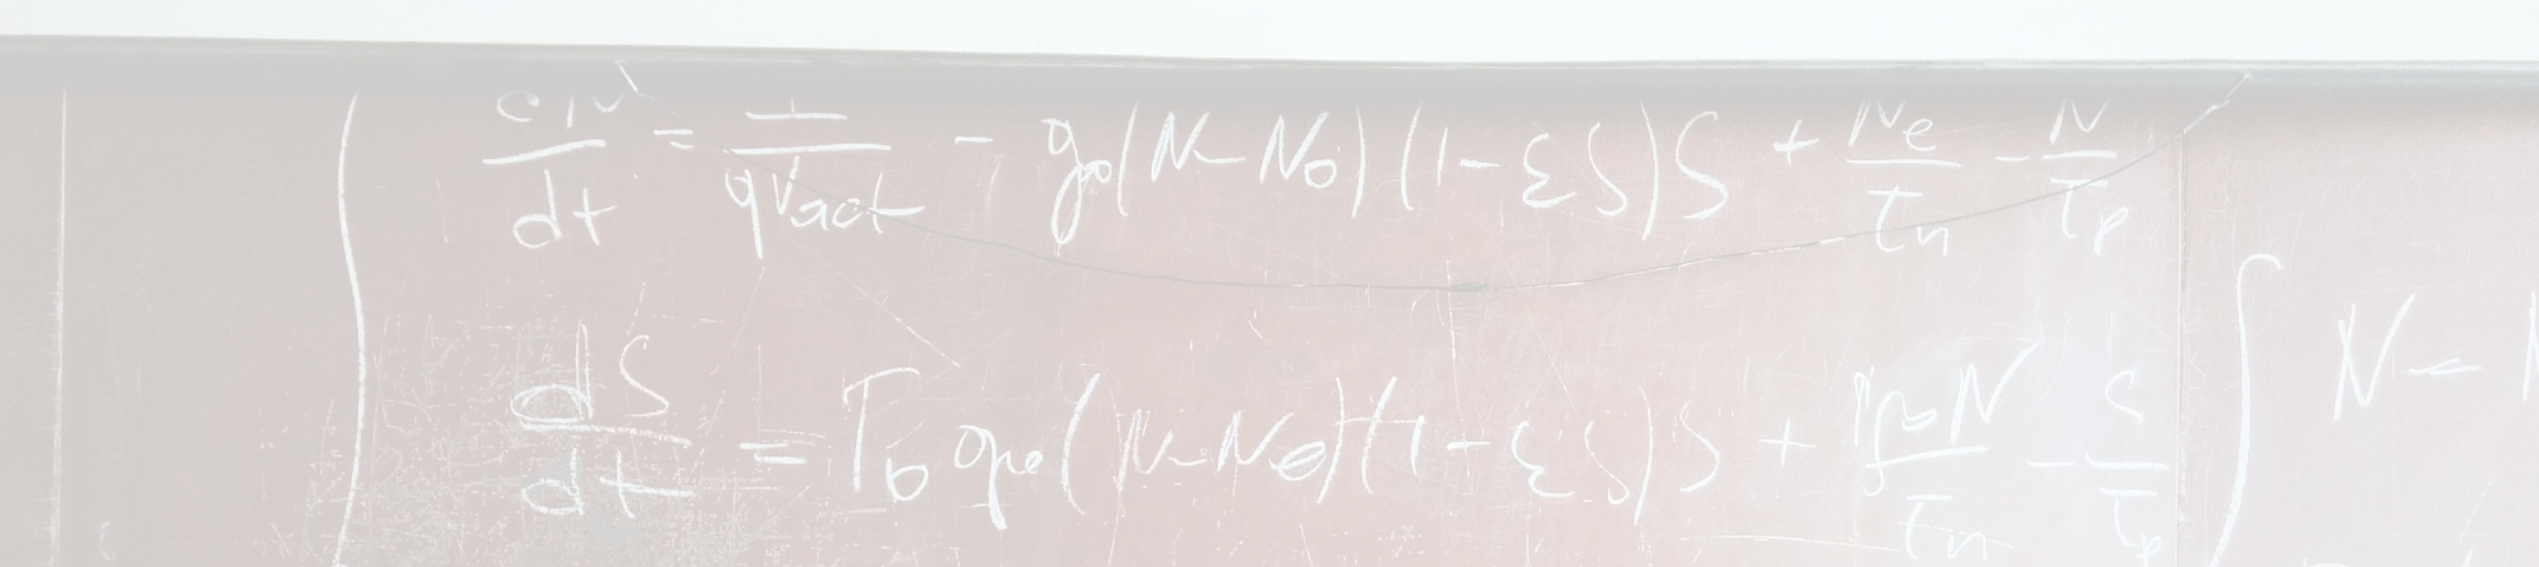 dN/dt = I/qVact - g0(N-N0)(1-εS)S + Ne/τn - N/τp
dS/dt = Γ0 g0(N-N0)(1-εS)S + ΓβN/τn - S/τp
N -